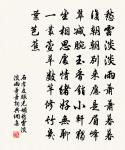 愁雲淡淡雨瀟瀟暮暮
復朝朝別來應是眉峰
翠減腕玉香銷小軒獨
坐相思處情緒好無聊
一叢萱草數竿修竹幾
葉芭蕉
石孝友眼兒媚愁雲淡
淡雨瀟瀟